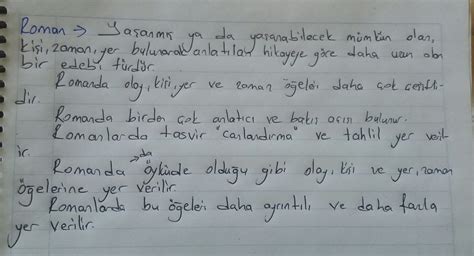 Roman → Yaşanmış ya da yaşanabilecek mümkün olan,
kişi, zaman, yer bulunarak anlatılan hikayeye göre daha uzun olan
bir edebi türdür.
Romanda olay, kişi, yer ve zaman öğeleri daha çok çeşitli-
dir.
Romanda birden çok anlatıcı ve bakış açısı bulunur.
Romanlarda tasvir "canlandırma" ve tahlil yer veril-
ir.
Romanda da öyküde olduğu gibi olay, kişi ve yer, zaman
öğelerine yer verilir.
Romanlarda bu öğeler daha ayrıntılı ve daha fazla
yer verilir.